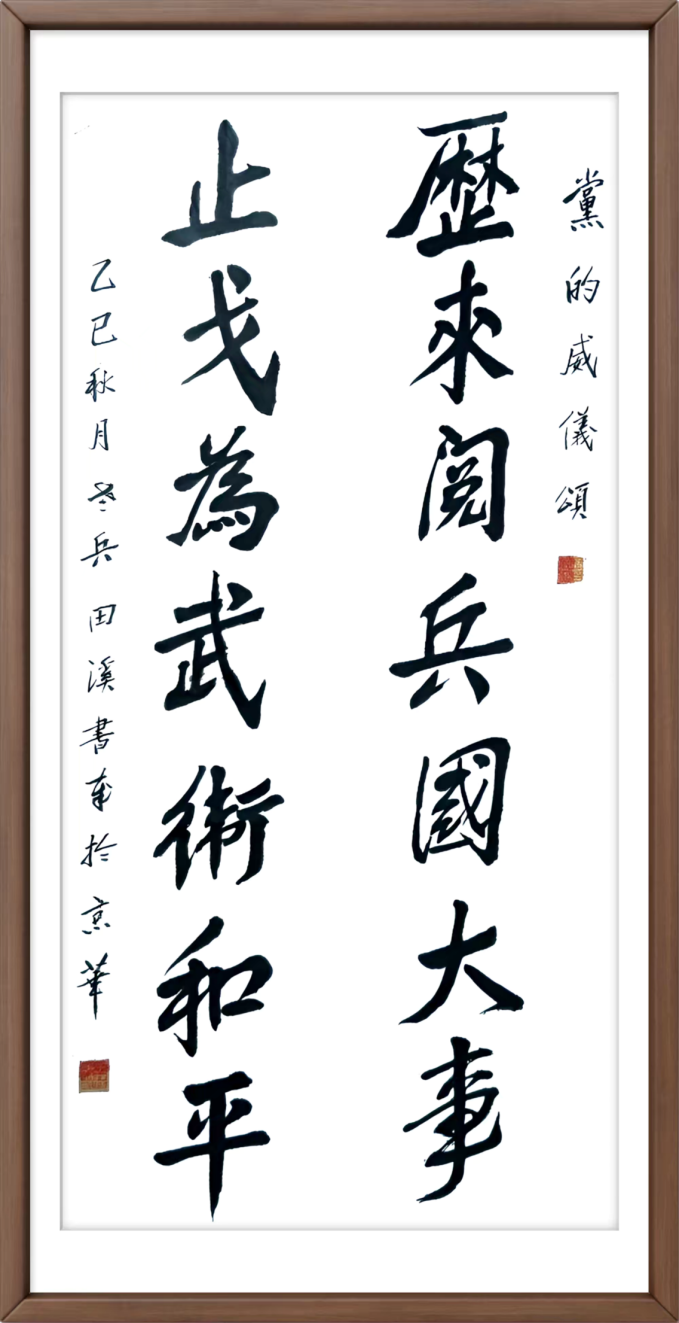 黨的威儀頌
歷來閱兵國大事
止戈為武術和平
乙巳秋月老兵田溪書奉於京華